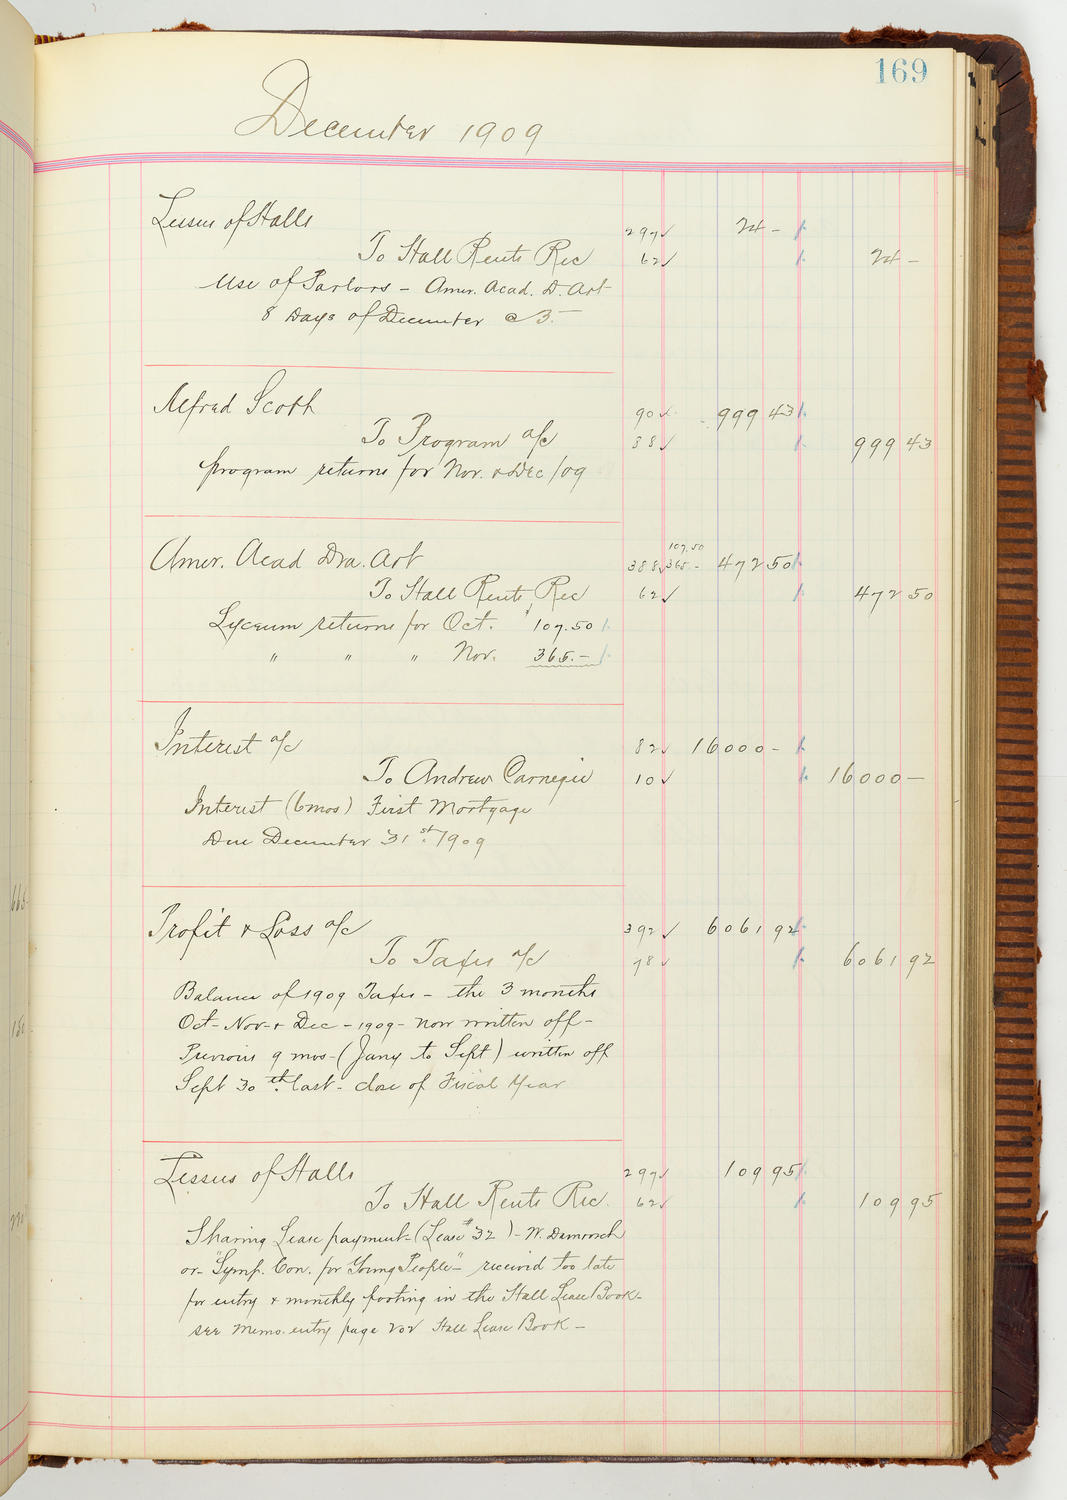 169
December 1909
Lessees of Halls 297✓ 24 -
To Hall Rents Rec 62✓ 24 -
Use of Parlors - Amer. Acad. D. Art
8 Days of December @ 3.-
Alfred Scott 90✓ 999 43
To Program a/c 88✓ 999 43
program returns for Nov. & Dec/09
107.50
Amer. Acad Dra. Art 388✓ 365.- 472 50
To Hall Rents Rec 62✓ 472 50
Lyceum returns for Oct. $107.50
" " " Nov. 365.-
Interest a/c 82✓ 16000 -
To Andrew Carnegie 10✓ 16000 -
Interest (6mos) First Mortgage
Due December 31st 1909
Profit & Loss a/c 392✓ 6061 92
To Taxes a/c 78✓ 6061 92
Balance of 1909 Taxes - the 3 months
Oct - Nov - & Dec - 1909 - now written off -
Previous 9 mos - (Jany to Sept) written off
Sept 30th last - close of Fiscal Year
Lessees of Halls 297✓ 109 95
To Hall Rents Rec. 62✓ 109 95
Sharing Lease payment - (Lease #32) - W. Damrosch
or - "Symp. Con. for Young People" - received too late
for entry & monthly footing in the Hall Lease Book -
see memo. entry page 202 Hall Lease Book -
665-
150 -